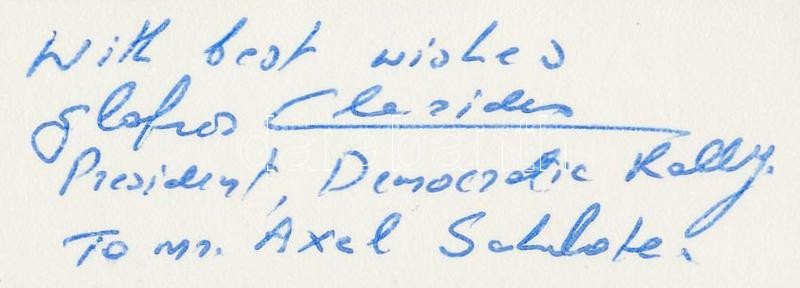 With best wishes
Glafcos Clerides
President, Democratic Rally.
To Mr. Axel Schulote.
darabanth